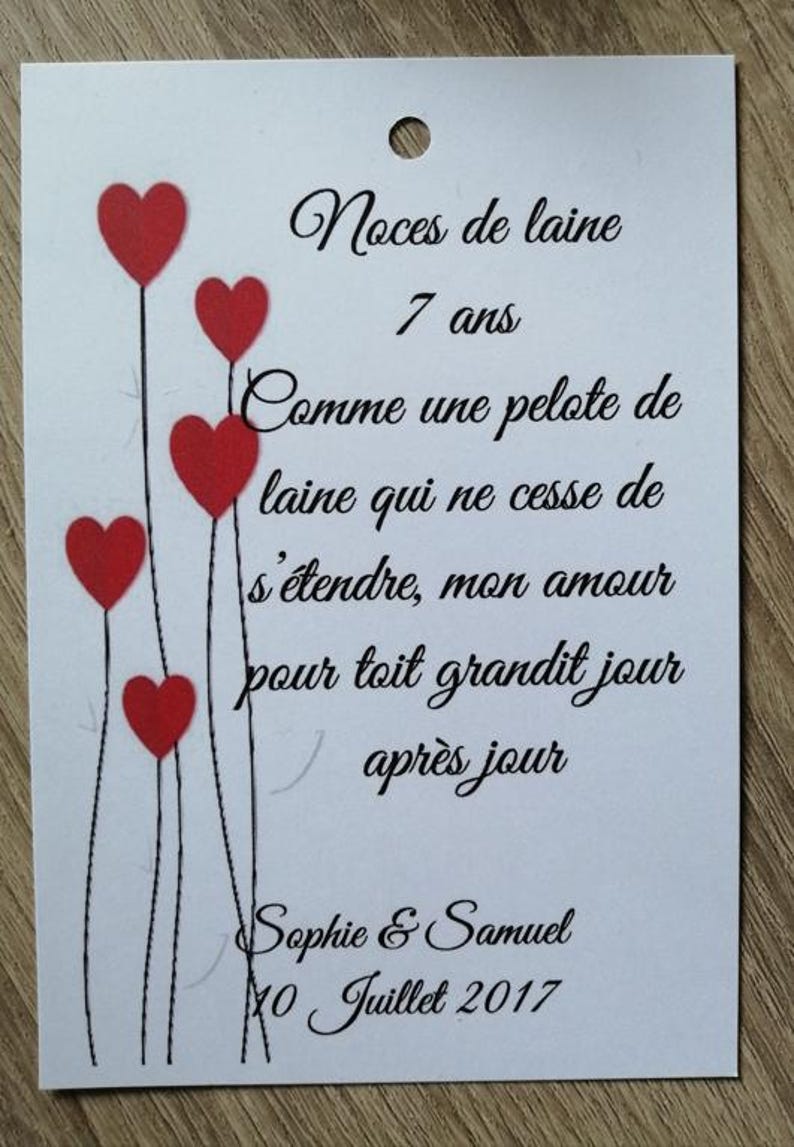 Noces de laine
7 ans
Comme une pelote de
laine qui ne cesse de
s'étendre, mon amour
pour toit grandit jour
après jour
Sophie & Samuel
10 Juillet 2017